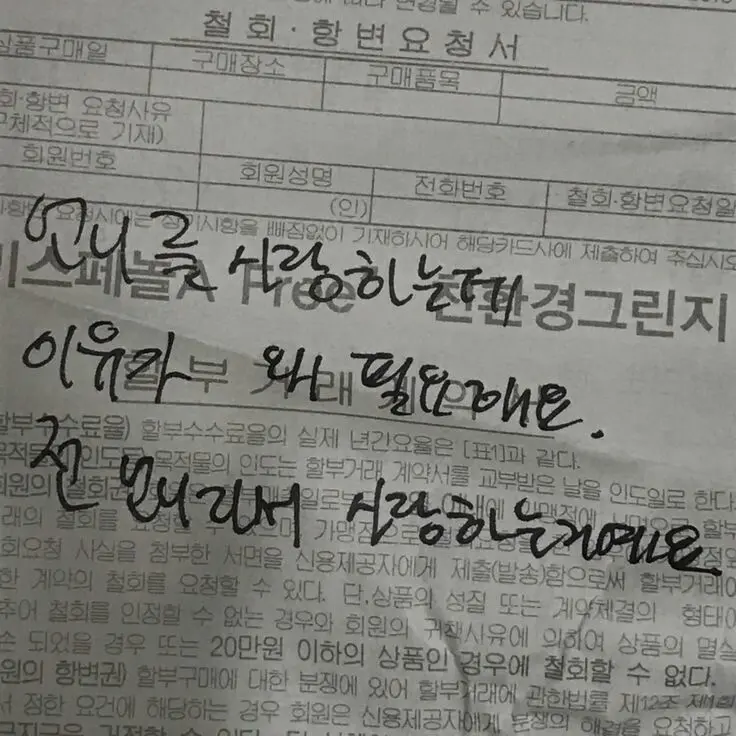 변경될 수 있습니다.
철회·항변요청서
상품구매일 구매장소 구매품목 금액
회·항변 요청사유
구체적으로 기재)
회원번호 회원성명 전화번호 철회·항변요청일
(인)
빠짐없이 기재하시어 해당카드사에 제출하여 주십시오
언니를 사랑하는데
이스페놀A Free 친환경그린지
이유가 왜 필요해요.
할부수수료율) 할부수수료율의 실제 년간요율은 [표1]과 같다.
목적물의 인도는 할부거래 계약서를 교부받은 날을 인도일로 한다.
전 언니라서 사랑하는거예요.
회요청 사실을 첨부한 서면을 신용제공자에게 제출(발송)함으로써 할부거래에
한 계약의 철회를 요청할 수 있다. 단,상품의 성질 또는 계약체결의 형태에
추어 철회를 인정할 수 없는 경우와 회원의 귀책사유에 의하여 상품의 멸실
손 되었을 경우 또는 20만원 이하의 상품인 경우에 철회할 수 없다.
원의 항변권) 할부구매에 대한 분쟁에 있어 할부거래에 관한법률 제12조
서 정한 요건에 해당하는 경우 회원은 신용제공자에게 분쟁의 해결을 요청하고